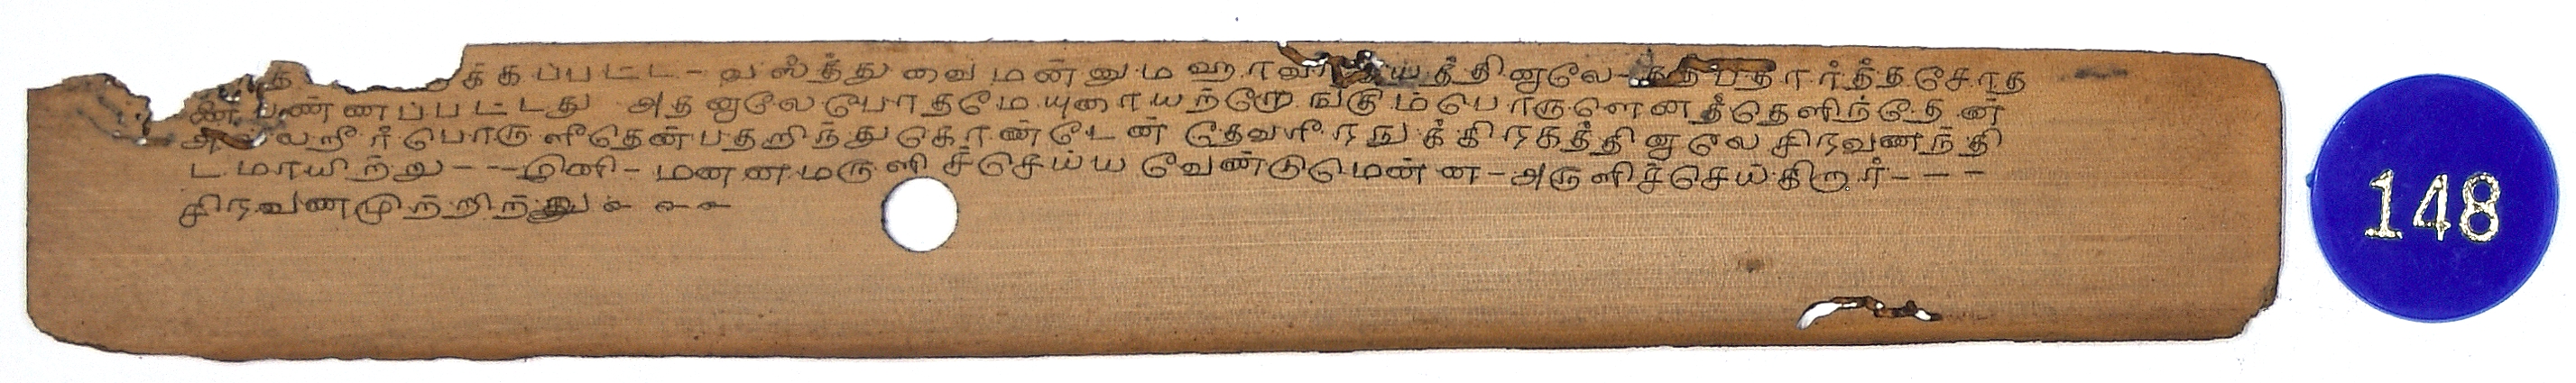 க்கப்பட்ட - வஸ்த்து வை மன்னு மஹாவாக்கியத்தினாலே - தத்பதார்த்த சோத
னை பண்ணப்பட்டது அதனாலே போதமேயுளாயற்றே ங்கும் பொருளெனத்தெளிந்தேன்
லறீர் பொருளீதென்பதறிந்து கொண்டேன் தேவரீரநுக்கிரகத்தினாலே சிரவணந்தி
டமாயிற்று - - இனி - மனனமருளிச்செய்ய வேண்டுமென்ன - அருளிச்செய்கிறார் - - -
சிரவணமுற்றிந்து
148